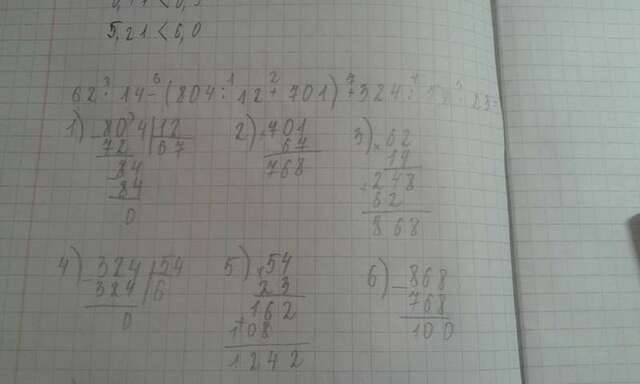 5,21 < 6,0
62 · 14 - (804 : 12 + 701) + 324 :
3 6 1 2 7 4 5
1) 804 | 12
72 | 67
84
84
0
2) 701
67
768
3) 62
14
248
62
868
4) 324 | 54
324 | 6
0
5) 54
23
162
108
1242
6) 868
768
100